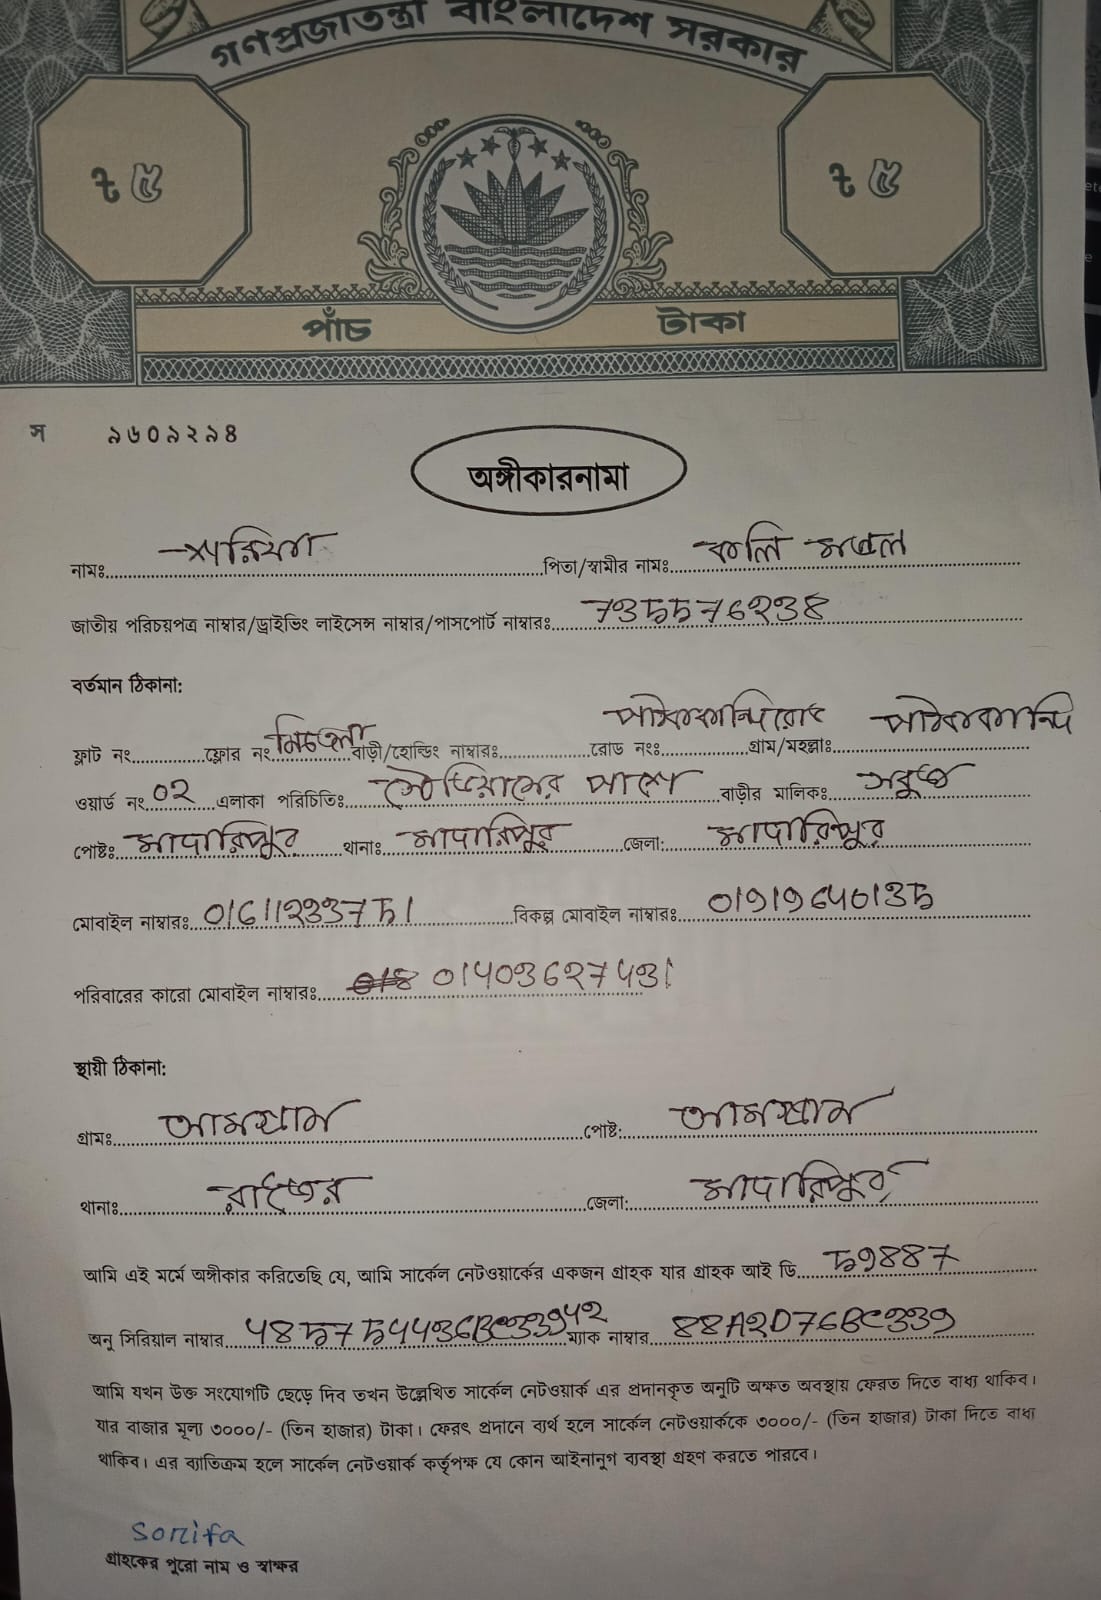 গণপ্রজাতন্ত্রী বাংলাদেশ সরকার
৳ ৫ ৳ ৫
পাঁচ টাকা
স ৯৬০৯২৯৪
অঙ্গীকারনামা
নামঃ শরিফা পিতা/স্বামীর নামঃ
জাতীয় পরিচয়পত্র নাম্বার/ড্রাইভিং লাইসেন্স নাম্বার/পাসপোর্ট নাম্বারঃ 7355576238
বর্তমান ঠিকানা:
ফ্লাট নং ফ্লোর নং বাড়ী/হোল্ডিং নাম্বারঃ রোড নংঃ গ্রাম/মহল্লাঃ
ওয়ার্ড নং 02 এলাকা পরিচিতিঃ স্টেডিয়ামের পাশে বাড়ীর মালিকঃ সবুজ
পোষ্টঃ মাদারিপুর থানাঃ মাদারিপুর জেলা: মাদারিপুর
মোবাইল নাম্বারঃ 01611233751 বিকল্প মোবাইল নাম্বারঃ
পরিবারের কারো মোবাইল নাম্বারঃ
স্থায়ী ঠিকানা:
গ্রামঃ আমগ্রাম পোষ্ট: আমগ্রাম
থানাঃ রাজৈর জেলা: মাদারিপুর
আমি এই মর্মে অঙ্গীকার করিতেছি যে, আমি সার্কেল নেটওয়ার্কের একজন গ্রাহক যার গ্রাহক আই ডি 59887
অনু সিরিয়াল নাম্বার ম্যাক নাম্বার 88A2D76BC339
আমি যখন উক্ত সংযোগটি ছেড়ে দিব তখন উল্লেখিত সার্কেল নেটওয়ার্ক এর প্রদানকৃত অনুটি অক্ষত অবস্থায় ফেরত দিতে বাধ্য থাকিব।
যার বাজার মূল্য ৩০০০/- (তিন হাজার) টাকা। ফেরৎ প্রদানে ব্যর্থ হলে সার্কেল নেটওয়ার্ককে ৩০০০/- (তিন হাজার) টাকা দিতে বাধ্য
থাকিব। এর ব্যাতিক্রম হলে সার্কেল নেটওয়ার্ক কর্তৃপক্ষ যে কোন আইনানুগ ব্যবস্থা গ্রহণ করতে পারবে।
Sorifa
গ্রাহকের পুরো নাম ও স্বাক্ষর